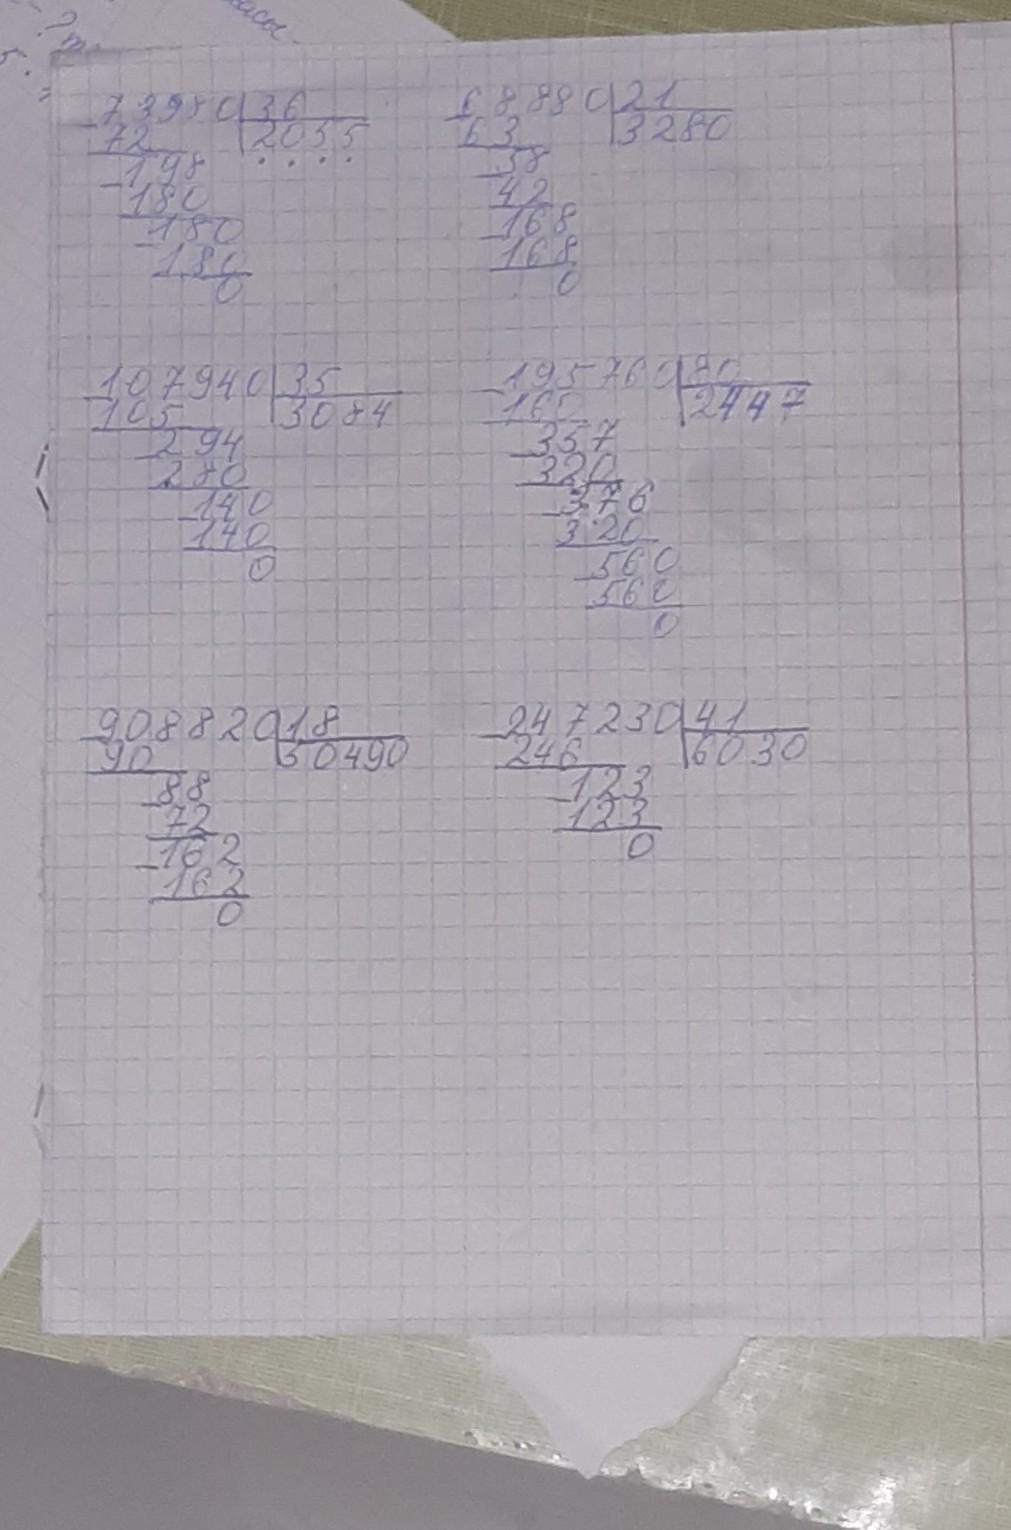 73980 36
72 2055
198
180
180
180
0
68880 21
63 3280
58
42
168
168
0
107940 35
105 3084
294
280
140
140
0
195760 80
160 2447
357
320
376
320
560
560
0
908820 18
90 50490
88
72
162
162
0
247230 41
246 6030
123
123
0